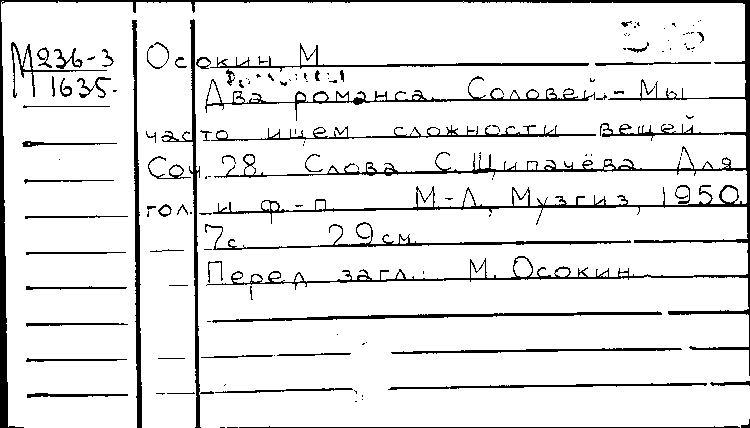 М 236-3
1635.
Осокин, М.
Два романса. Соловей. - Мы
часто ищем сложности вещей.
Соч. 28. Слова С. Щипачёва. Для
гол. и ф.-п. М-Л, Музгиз, 1950.
7с. 29см.
Перед загл.: М. Осокин